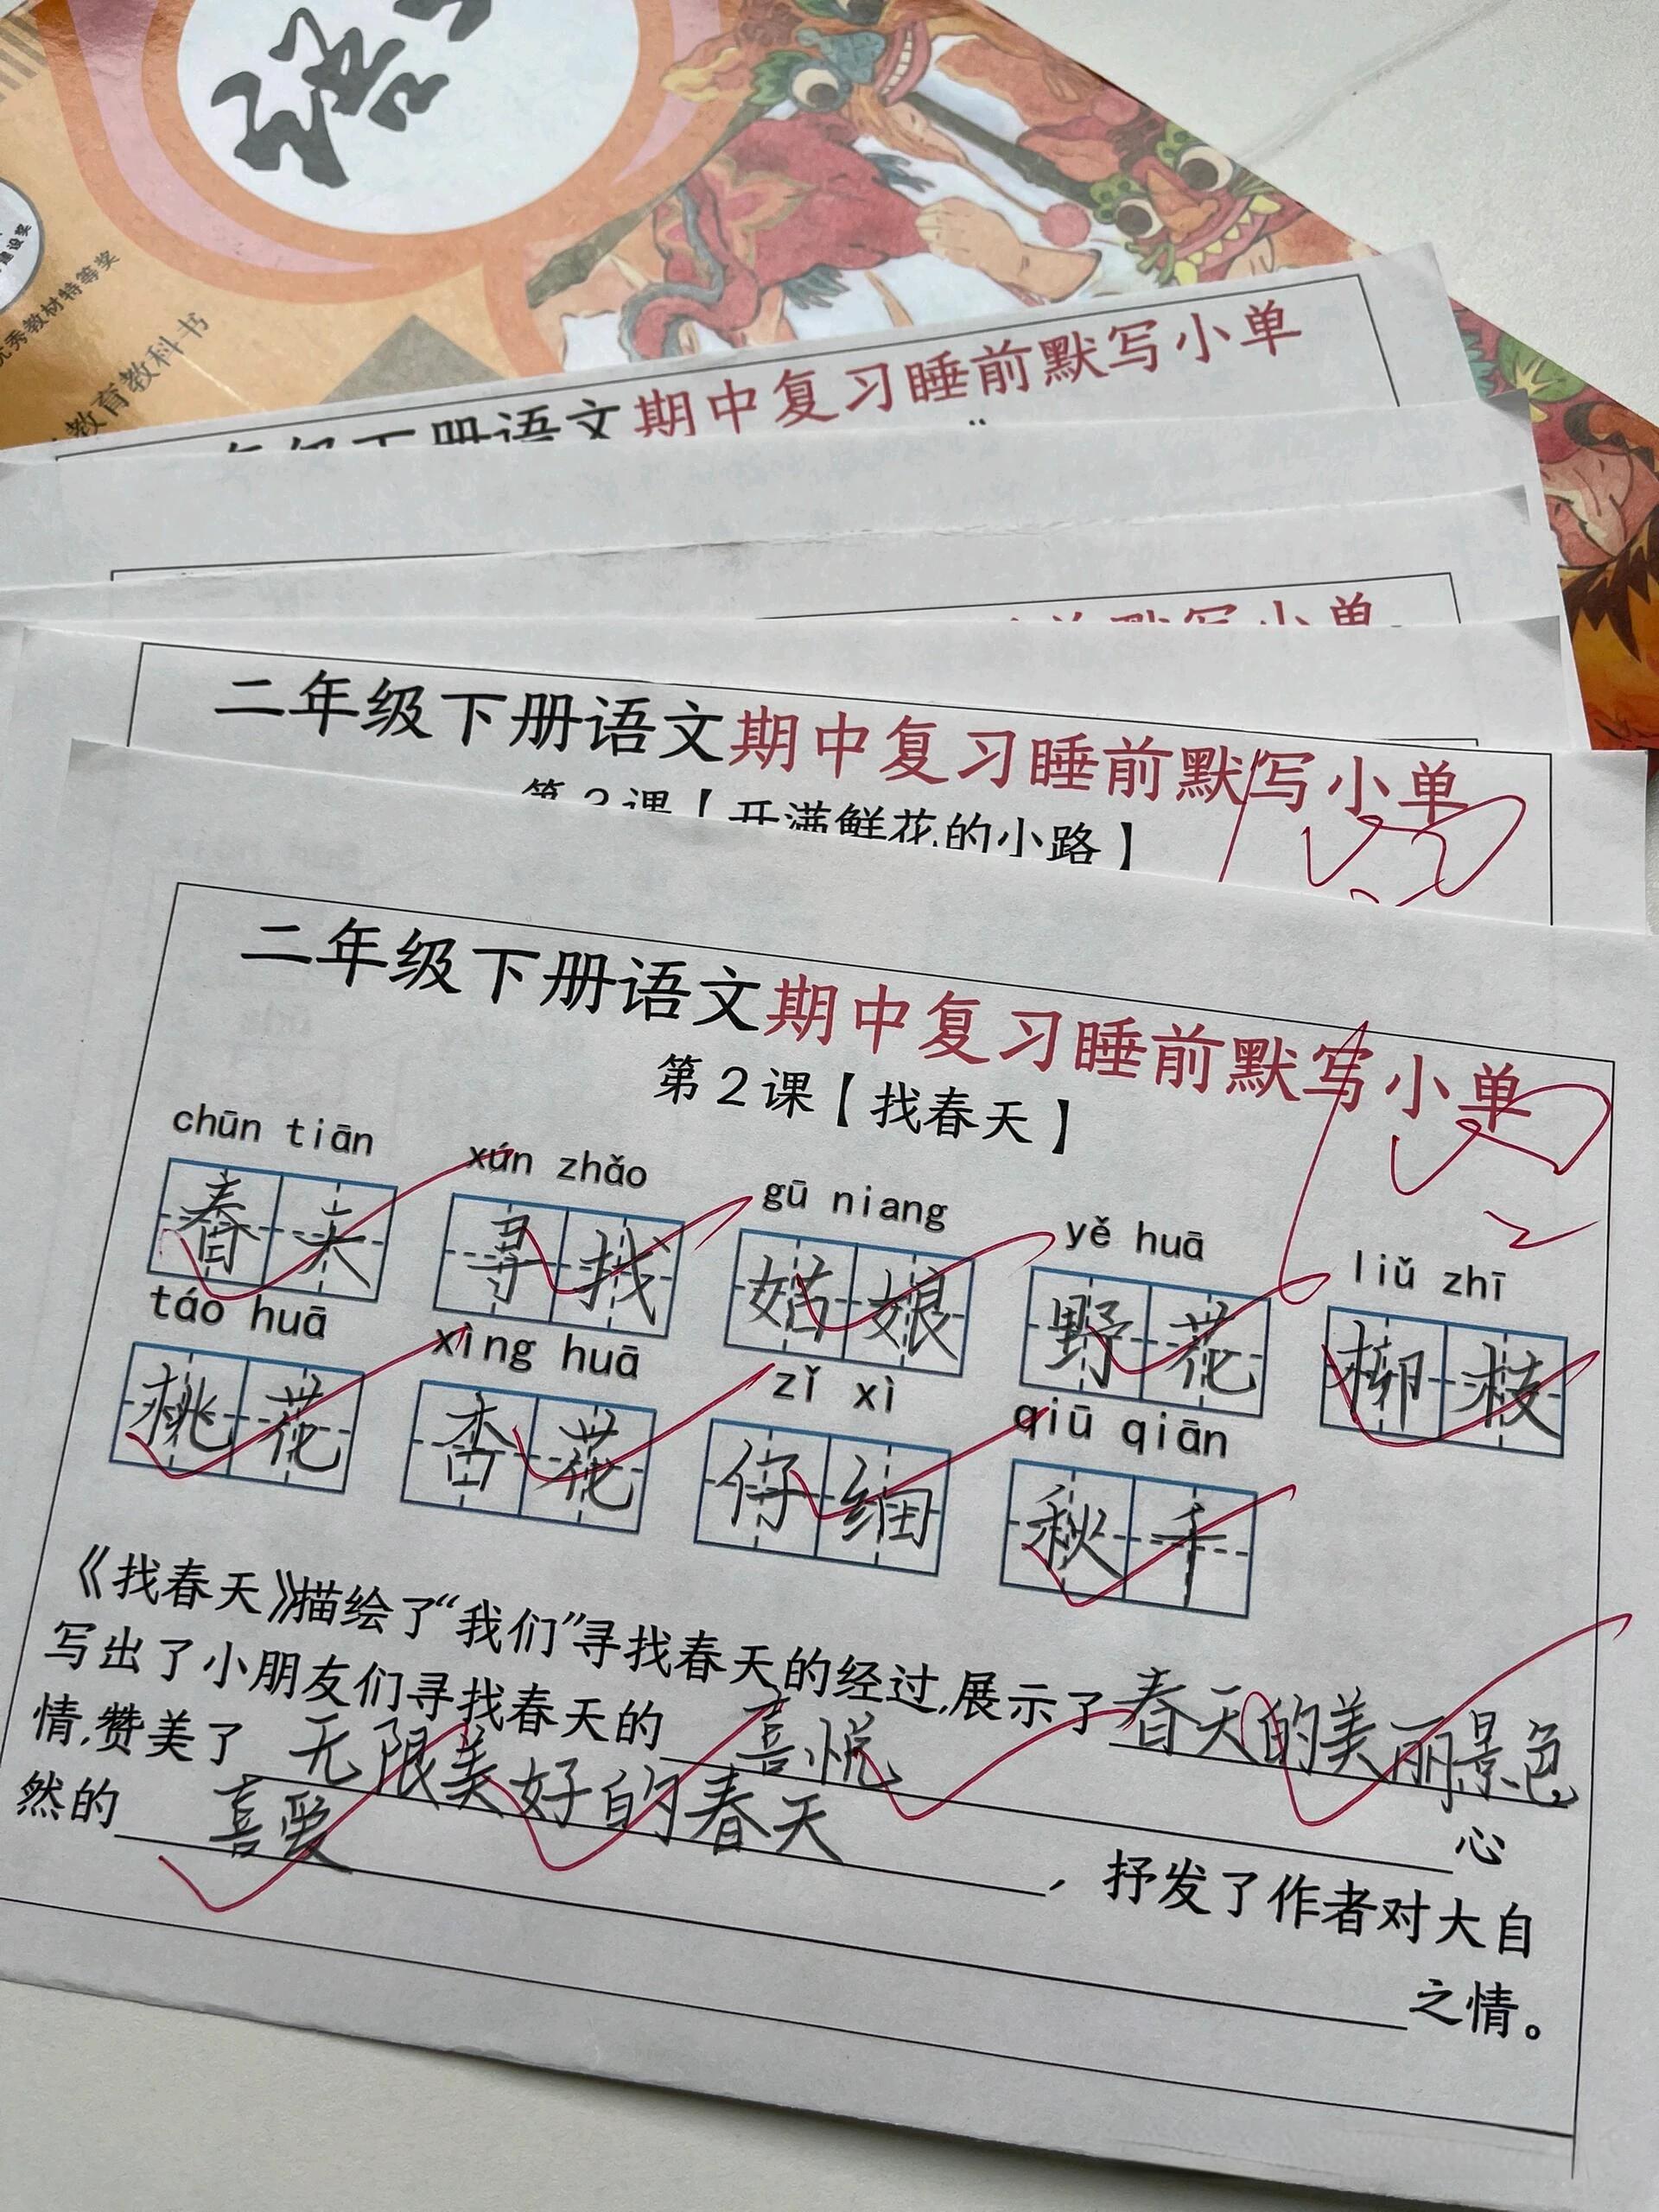 语
建设奖
优秀教材特等奖
教育教科书
年级下册语文期中复习睡前默写小单
默写小单
二年级下册语文期中复习睡前默写小单
第3课【开满鲜花的小路】
二年级下册语文期中复习睡前默写小单
第2课【找春天】
chūn tiān xún zhǎo gū niang yě huā liǔ zhī
春天 寻找 姑娘 野花 柳枝
táo huā xìng huā zǐ xì qiū qiān
桃花 杏花 仔细 秋千
《找春天》描绘了“我们”寻找春天的经过,展示了春天的美丽景色
写出了小朋友们寻找春天的 喜悦 心
情,赞美了 无限美好的春天 ，抒发了作者对大自
然的 喜爱 之情。